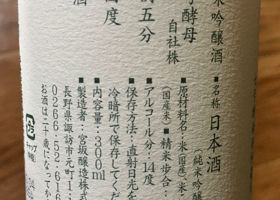 米吟醸酒
■名称
日本酒
(純米吟醸
■原材料名:米(国産)・米
(国産米)
■精米歩合:
■アルコール分:14度
■保存方法:直射日光を
冷暗所で保存してくだ
■内容量:300ml
■製造者:宮坂醸造株式
長野県諏訪市元町1-
0266-52-616
お酒は二十歳になってか
酵母
自社株
五分
度
酒
キャップ